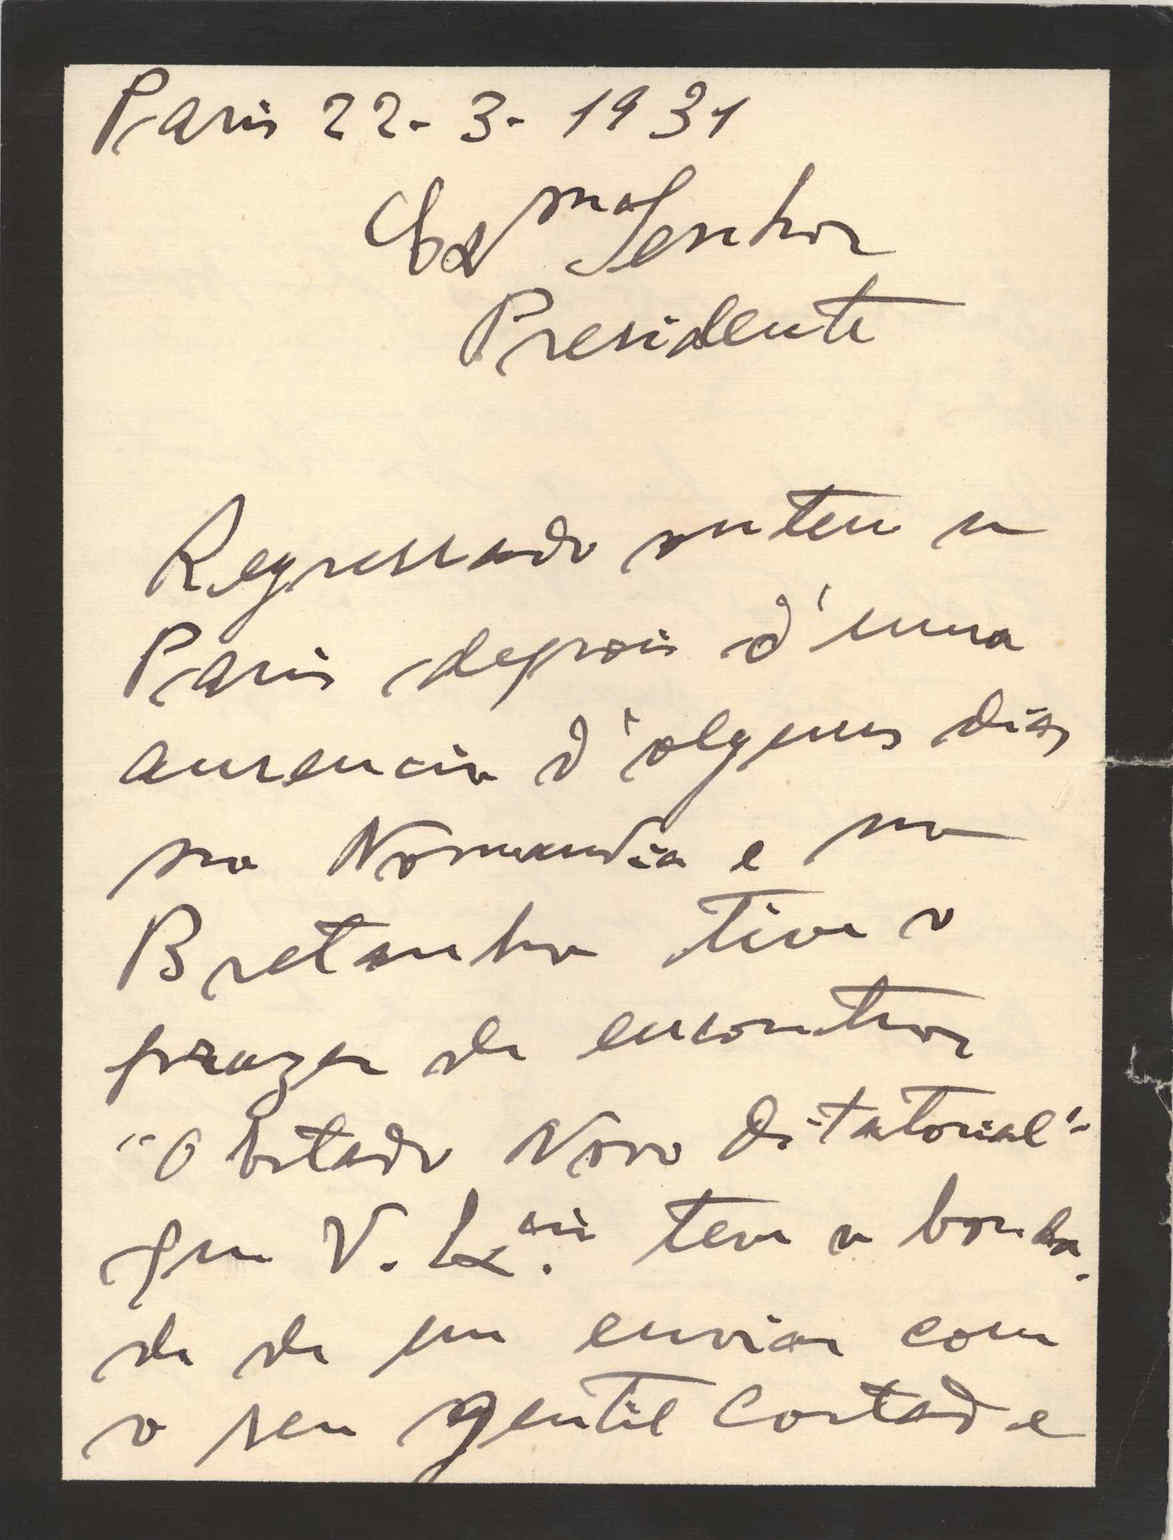 Paris 22-3-1931
Exmo Senhor
Presidente
Regressado ontem a
Paris depois d'uma
ausencia d'alguns dias
na Normandia e na
Bretanha tive o
prazer de encontrar
"O Estado Novo Ditatorial"
que V. Excia. teve a bonda-
de de me enviar com
o seu gentil cartão e